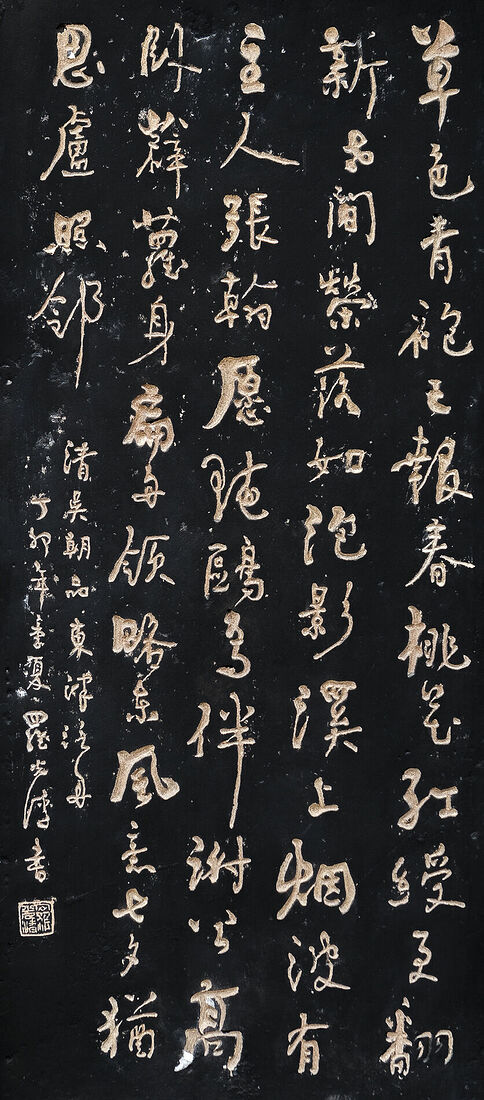 草色青袍已報春桃花紅綬更翻
新世間榮落如泡影溪上烟波有
主人張翰愿随鷗為伴謝公高
卧薜蘿身扁舟領略東風意七夕猶
思盧照鄰
清吳朝品東津泛舟
丁卯年季夏羅光溥書